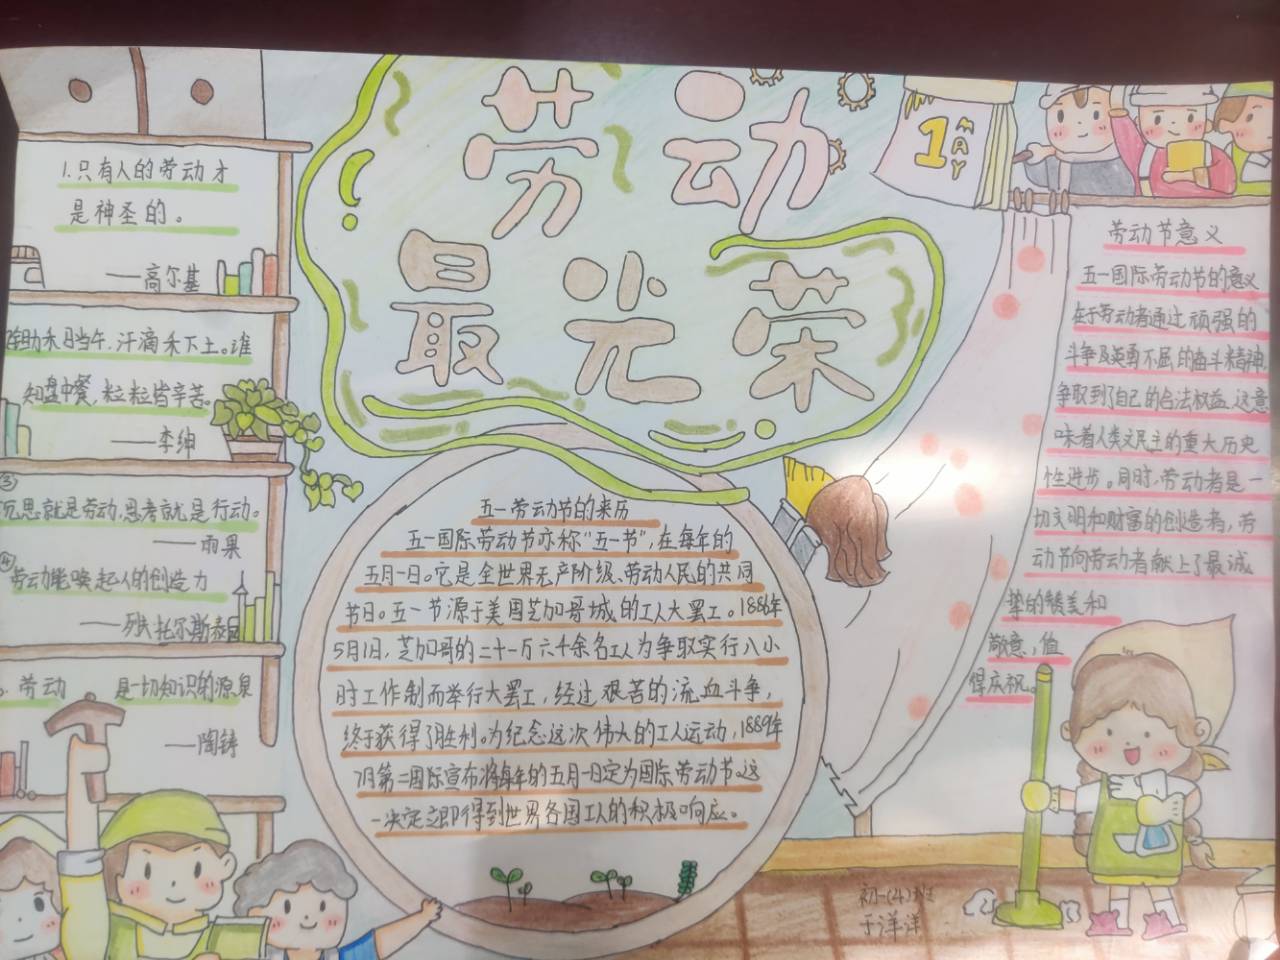 劳动
最光荣
1
MAY
1.只有人的劳动才
是神圣的。
——高尔基
锄禾日当午,汗滴禾下土。谁
知盘中餐,粒粒皆辛苦。
——李绅
③
思就是劳动,思考就是行动。
——雨果
④
劳动能唤起人的创造力
——列夫托尔斯泰
劳动 是一切知识的源泉
——陶铸
五一劳动节的来历
五一国际劳动节亦称“五一节”,在每年的
五月一日。它是全世界无产阶级、劳动人民的共同
节日。五一节源于美国芝加哥城的工人大罢工。1886年
5月1日,芝加哥的二十一万六千余名工人为争取实行八小
时工作制而举行大罢工,经过艰苦的流血斗争,
终于获得了胜利。为纪念这次伟大的工人运动,1889年
7月第二国际宣布将每年的五月一日定为国际劳动节。这
一决定立即得到世界各国工人的积极响应。
劳动节意义
五一国际劳动节的意义
在于劳动者通过顽强的
斗争及英勇不屈的奋斗精神,
争取到了自己的合法权益,这意
味着人类文民主的重大历史
性进步。同时,劳动者是一
切文明和财富的创造者,劳
动节向劳动者献上了最诚
挚的赞美和
敬意,值
得庆祝。
初一(4)班
于洋洋